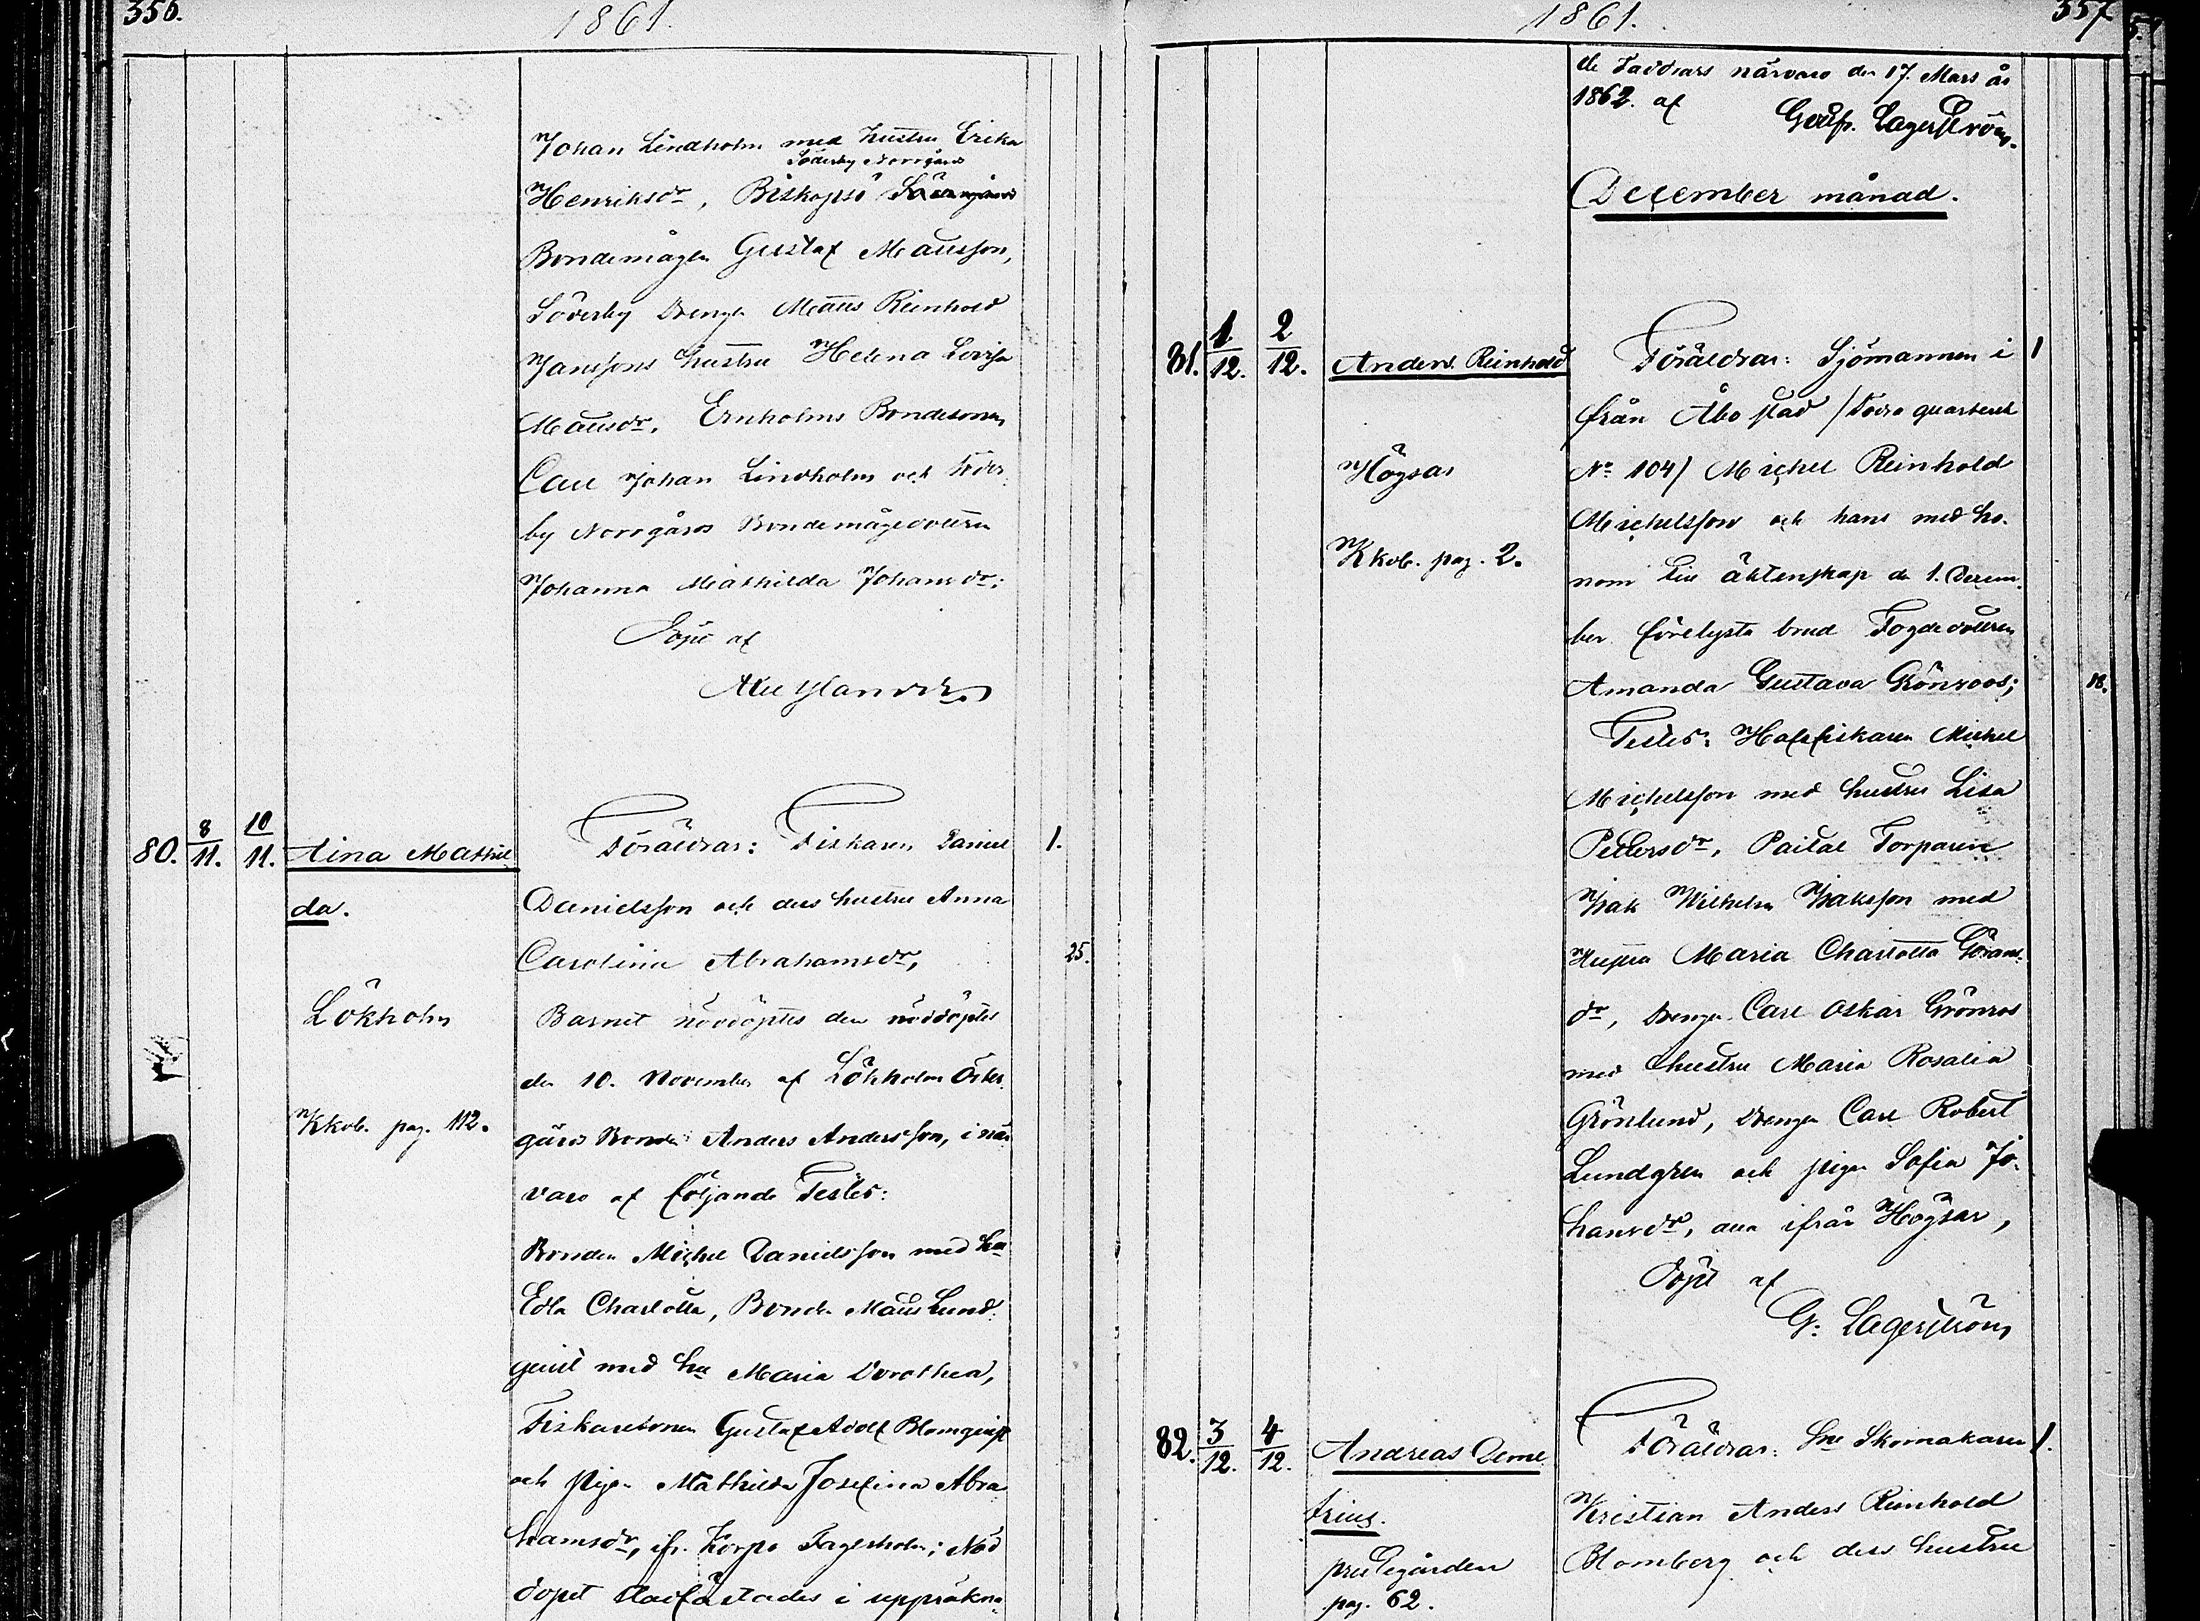 356.
1861.
Johan Lindholm med hustru Erika
Söderby Norrgård
Henriksdr, Biskopsö
Bondemågen Gustaf Mattsson,
Söderby Drengen Matts Reinhold
Janssons hustru Helena Lovisa
Mattsdr, Ernholms Bondesonen
Carl Johan Lindholm och Söder-
by Norrgårds Bondemågedottren
Johanna Mathilda Johansdr;
Döpt af
80. 8/11. 10/11. Tina Mathil
da.
Lökholm
Kkob. pag. 112.
Föräldrar: Fiskaren Daniel 1.
Danielsson och dess hustru Anna
Carolina Abrahamsdr, 25.
Barnet nöddöptes den nöddöptes
den 10. November af Lökholm Öster-
gårds Bonden Anders Andersson, i när
varo af följande Testes:
Bonden Michel Danielsson med hu
Edla Charlotta, Bonden Matts Lund-
qvist med hu Maria Dorothea,
Fiskaresonen Gustaf Adolf Blomqvist
och pigan Mathilda Josefina Abra
hamsdr, ifr. Korpo Fagerholm; Nöd
dopet stadfästades i uppräkna-
357
1861.
de Faddrars närvaro den 17. Mars år
1862. af
Gust. Lagerström.
December månad.
81. 1/12. 2/12. Anders Reinhold
Högsar
Kkob. pag. 2.
Föräldrar: Sjömannen i 1
från Åbo stad /Södra quarteret
No 104/ Michel Reinhold
Michelsson och hans med ho-
nom till äktenskap den 1. Decem-
ber förelysta brud Fogdedottren
Amanda Gustava Grönroos; 18.
Testes: Hafsfiskaren Michel
Michelsson med hustru Lisa
Pettersdr, Torparen
Isak Wilhelm Isaksson med
Hustru Maria Charlotta Görans-
dr, Drengen Carl Oskar Grönros
med hustru Maria Rosalia
Grönlund, Drengen Carl Robert
Lundgren och pigan Sofia Jo-
hansdr, alla ifrån Högsar,
Döpt af
G: Lagerström
82. 3/12. 4/12. Andreas Deme
trius.
prestegården
pag. 62.
Föräldrar: Sne Skomakaren 1.
Kristian Anders Reinhold
Blomberg och dess hustru